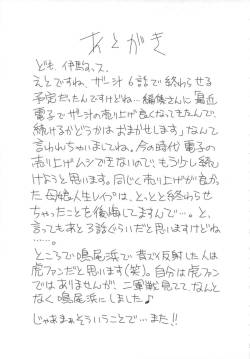 あとがき
ども、伊駒っス。
えとですね、ザー汁6話で終わらせる
予定だったんですけどね…編優さんに最近
電子でザー汁の売り上げ良くなってきたんで、
続けるかどうかはおまかせします」なんて
言われちゃいましてね。今の時代電子の
売り上げムシできないので、もう少し続
けようと思います。同じく売り上げが良かっ
た母娘人生レイプは、とっとと終わらせ
ちゃったことも後悔してますんで…。と、
言ってもあと3話ぐらいだと思いますけどね
……。
ところで鳴尾浜で反射した人は
虎ファンだと思います(笑)。自分は虎ファン
ではありませんが、二軍戦見てて、なんと
なく鳴尾浜にしました♪
じゃあまぁそういうことで…また!!